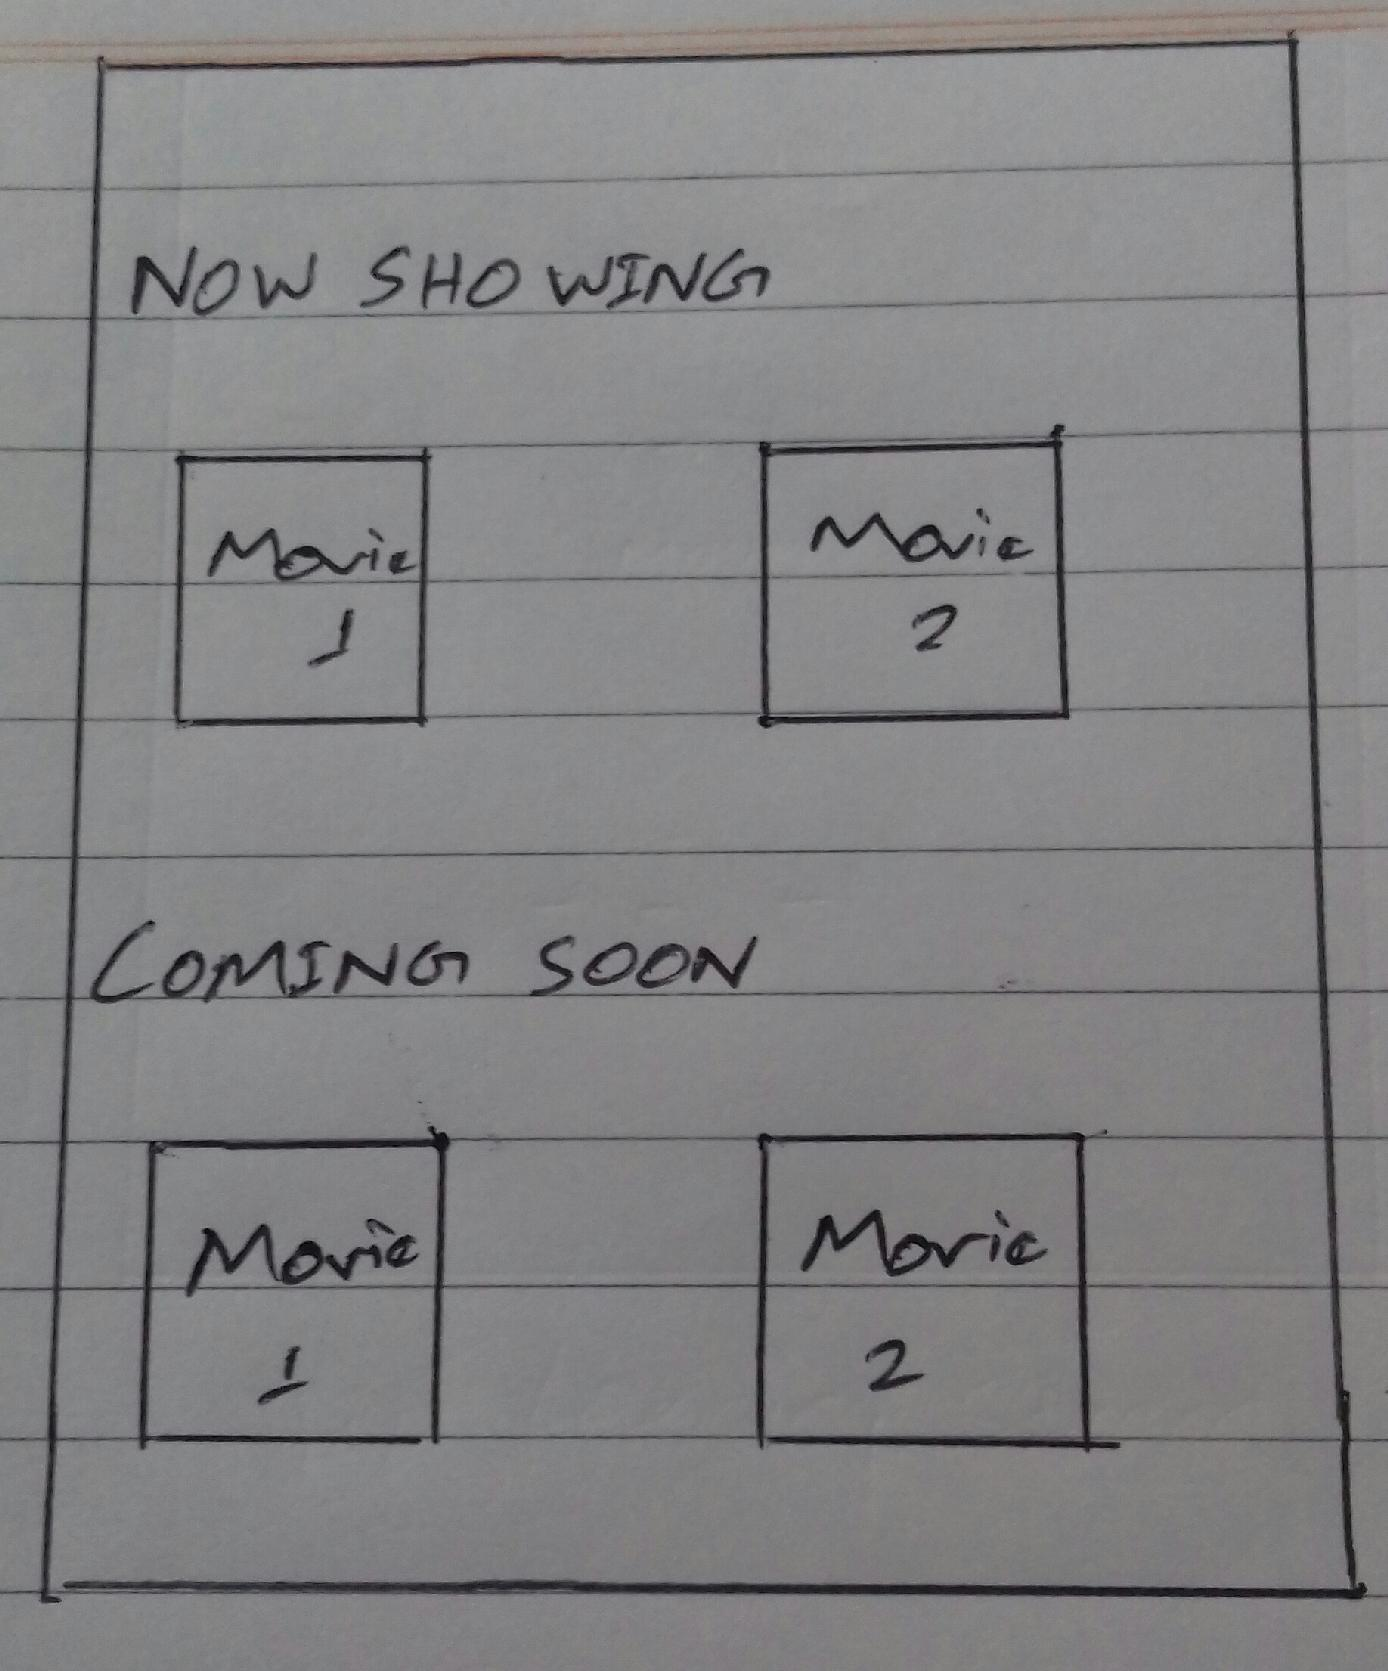 NOW SHOWING
Movie Movie
1 2
COMING SOON
Movie Movie
1 2